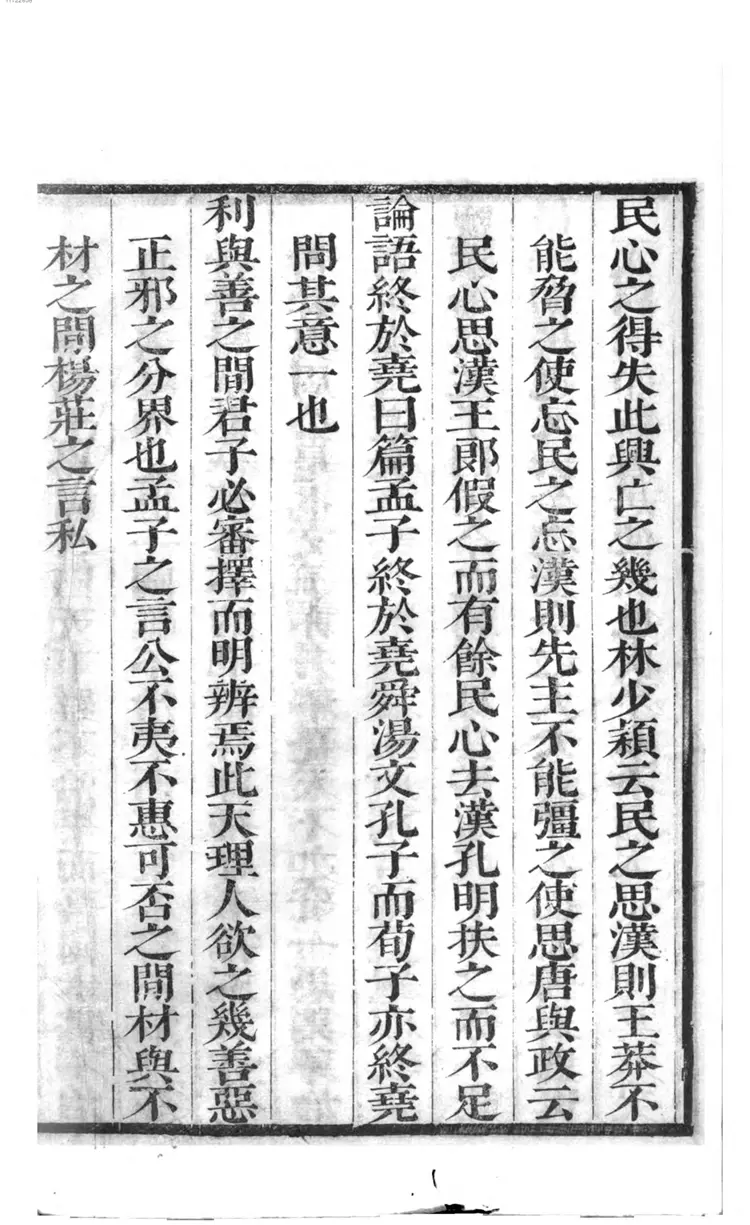 民心之得失此興亡之幾也林少穎云民之思漢則王莽不
能脅之使忘民之忘漢則先主不能彊之使思唐與政云
民心思漢王郎假之而有餘民心去漢孔明扶之而不足
論語終於堯曰篇孟子終於堯舜湯文孔子而荀子亦終堯
問其意一也
利與善之間君子必審擇而明辨焉此天理人欲之幾善惡
正邪之分界也孟子之言公不夷不惠可否之間材與不
材之間楊莊之言私